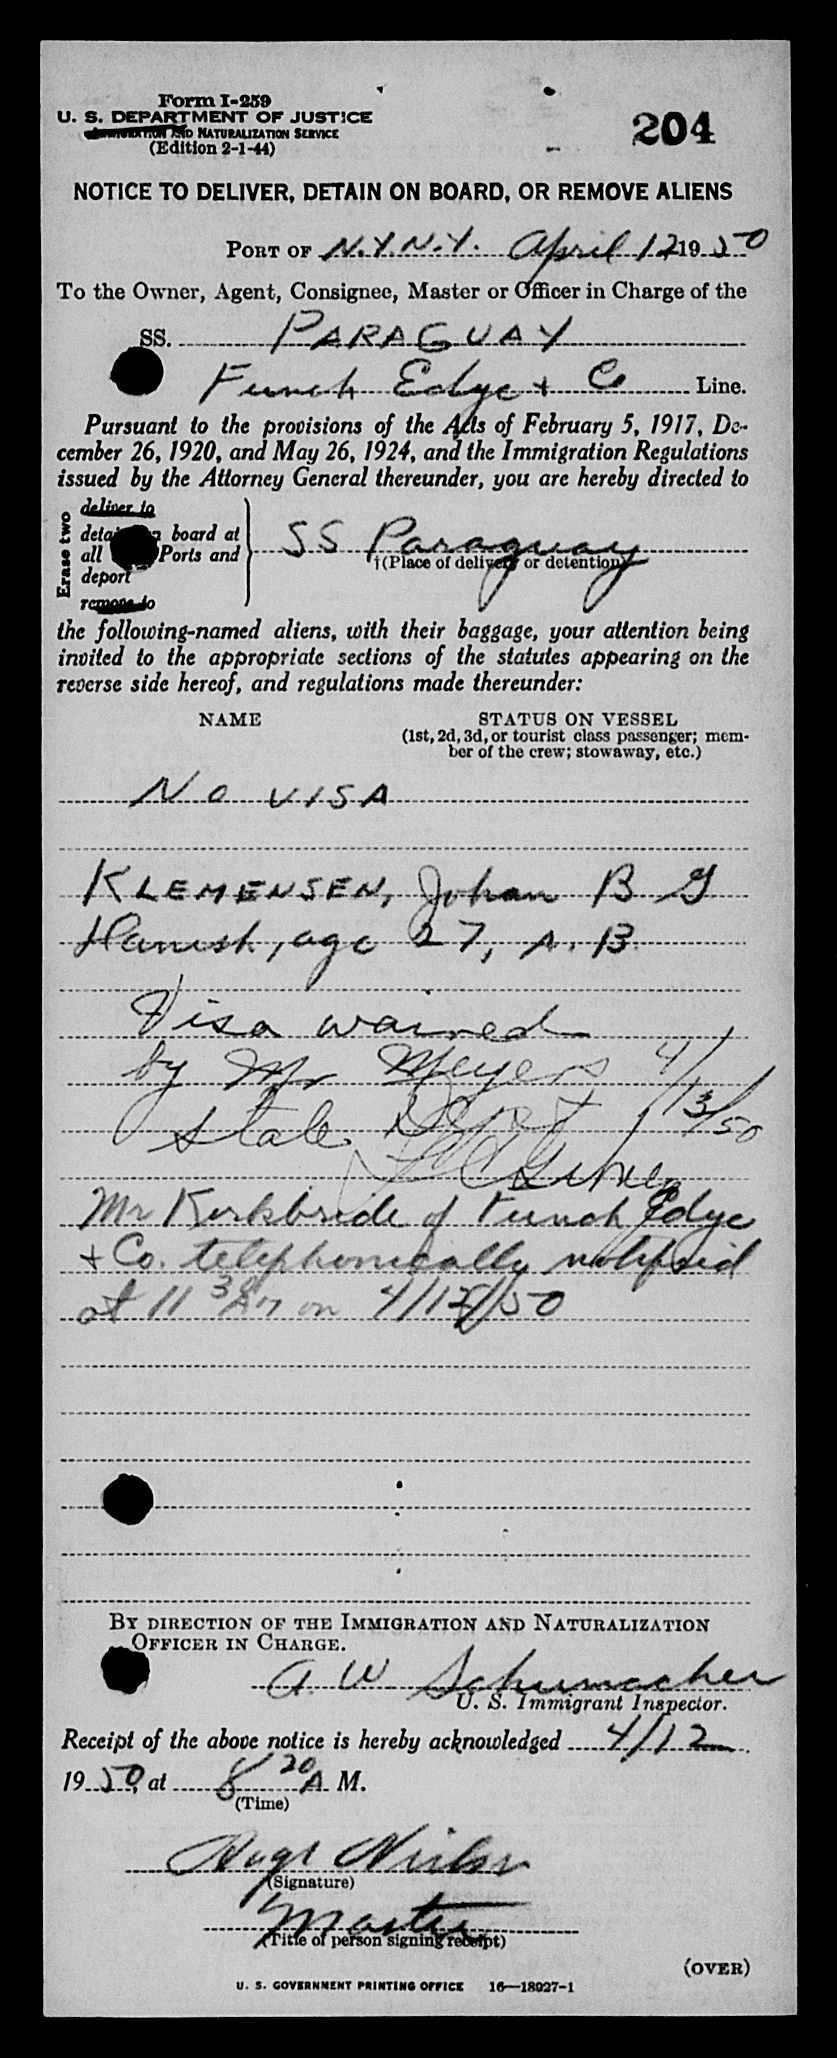 Form I-259
U. S. DEPARTMENT OF JUSTICE
IMMIGRATION AND NATURALIZATION SERVICE
(Edition 2-1-44)
204
NOTICE TO DELIVER, DETAIN ON BOARD, OR REMOVE ALIENS
PORT OF N.Y.N.Y. April 12 1950
To the Owner, Agent, Consignee, Master or Officer in Charge of the
SS. PARAGUAY
Funch Edye + Co Line.
Pursuant to the provisions of the Acts of February 5, 1917, De-
cember 26, 1920, and May 26, 1924, and the Immigration Regulations
issued by the Attorney General thereunder, you are hereby directed to
Erase two
deliver to
detain on board at
all Ports and
deport
remove to
SS Paraguay
†(Place of delivery or detention)
the following-named aliens, with their baggage, your attention being
invited to the appropriate sections of the statutes appearing on the
reverse side hereof, and regulations made thereunder:
NAME
STATUS ON VESSEL
(1st, 2d, 3d, or tourist class passenger; mem-
ber of the crew; stowaway, etc.)
NO VISA
KLEMENSEN, Johan B G
Danish, age 27, A.B.
Visa waived
by Mr Meyers 4/13/50
State Dept
Mr Kirkbride of Funch Edye
+ Co. telephonically notified
at 11 30 AM on 4/12/50
BY DIRECTION OF THE IMMIGRATION AND NATURALIZATION
OFFICER IN CHARGE.
A W Schumacher
U. S. Immigrant Inspector.
Receipt of the above notice is hereby acknowledged 4/12
1950, at 8 20 A M.
(Time)
(Signature)
Master
(Title of person signing receipt)
(OVER)
U. S. GOVERNMENT PRINTING OFFICE 16—18027-1